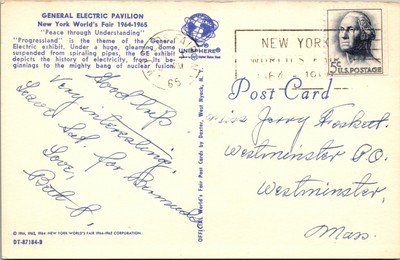 GENERAL ELECTRIC PAVILION
New York World's Fair 1964-1965
"Peace through Understanding"
"Progressland" is the theme of the General
Electric exhibit. Under a huge, gleaming dome
suspended from spiraling pipes, the GE exhibit
depicts the history of electricity, from its be-
ginnings to the mighty bang of nuclear fusion.
UNISPHERE®
NEW YORK
WORLD'S FAIR
65
5¢ U.S. POSTAGE
Post Card
Good trip
Very interesting.
Leave Sat. for Bermuda
Love,
Miss Jerry
Westminster P.O.
Westminster,
Mass.
OFFICIAL World's Fair Post Cards by Dexter, West Nyack, N. Y.
© 1961, 1962, 1964 NEW YORK WORLD'S FAIR 1964-1965 CORPORATION
DT-87184-B